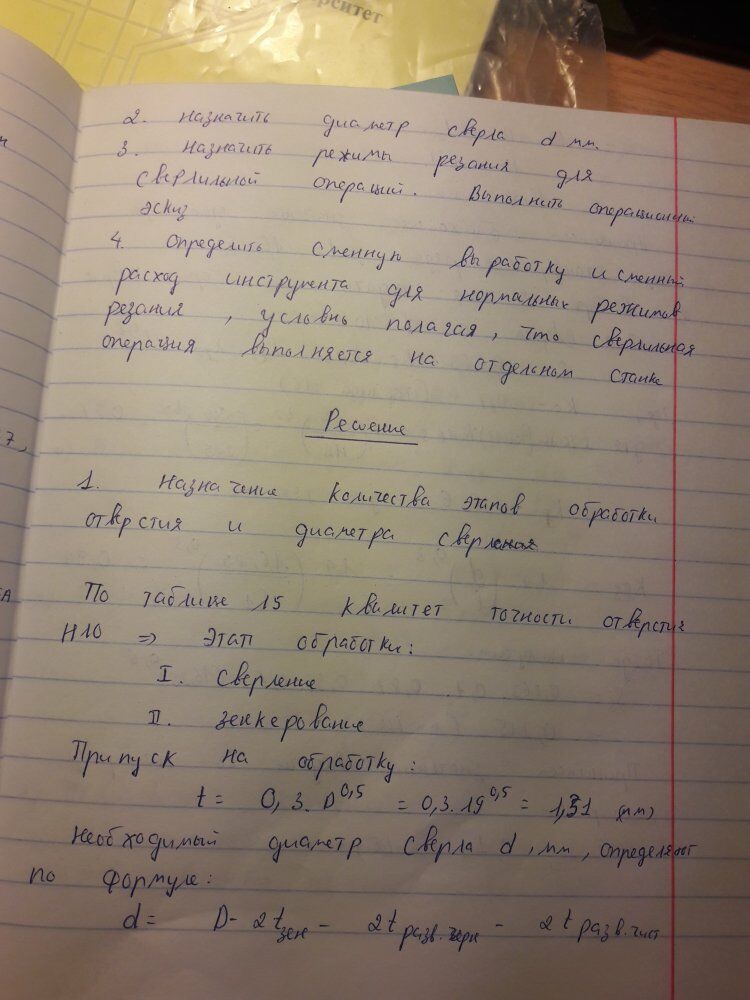 рситет
2. Назначить диаметр сверла d мм.
3. Назначить режимы резания для
сверлильной операций. Выполнить операционный
эскиз
4. Определить сменную выработку и сменный
расход инструмента для нормальных режимов
резания, условно полагая, что сверлильная
операция выполняется на отдельном станке
Решение
1. Назначение количества этапов обработки
отверстия и диаметра сверления
По таблице 15 квалитет точности отверстия
H10 => Этап обработки:
I. Сверление
II. Зенкерование
Припуск на обработку:
t = 0,3 · D^0,5 = 0,3 · 19^0,5 = 1,31 (мм)
Необходимый диаметр сверла d, мм, определяют
по формуле:
d = D - 2t зен - 2t разв.черн - 2t разв.чист